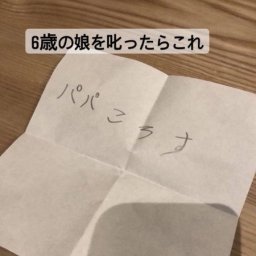 6歳の娘を叱ったらこれ
パパころす